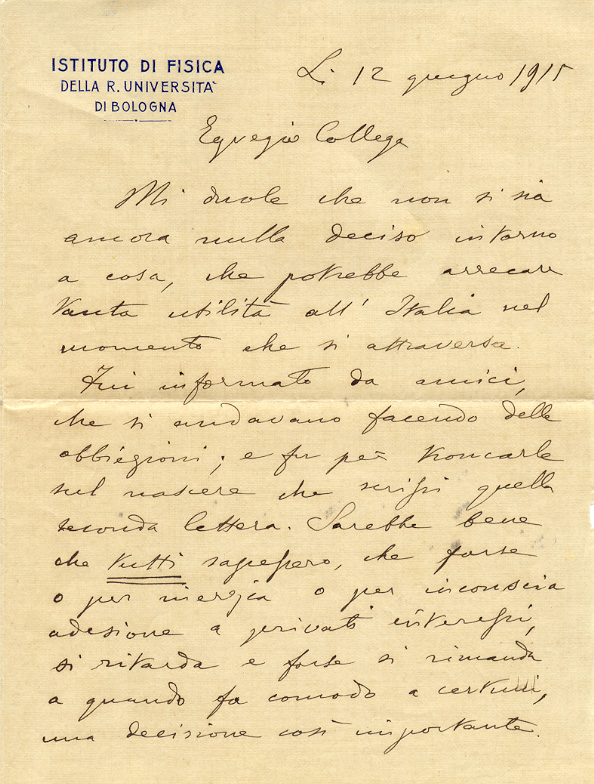 ISTITUTO DI FISICA
DELLA R. UNIVERSITÀ
DI BOLOGNA
Li 12 giugno 1915
Egregio Collega
Mi duole che non si sia
ancora nulla deciso intorno
a cosa, che potrebbe arrecare
tanta utilità all' Italia nel
momento che si attraversa.
Fui informato da amici,
che si andavano facendo delle
obbiezioni; e fu per troncarle
sul nascere che scrissi quella
seconda lettera. Sarebbe bene
che tutti sapessero, che forse
o per inerzia o per inconscia
adesione a privati interessi,
si ritarda e forse si rimanda
a quando fa comodo a certuni,
una decisione così importante.